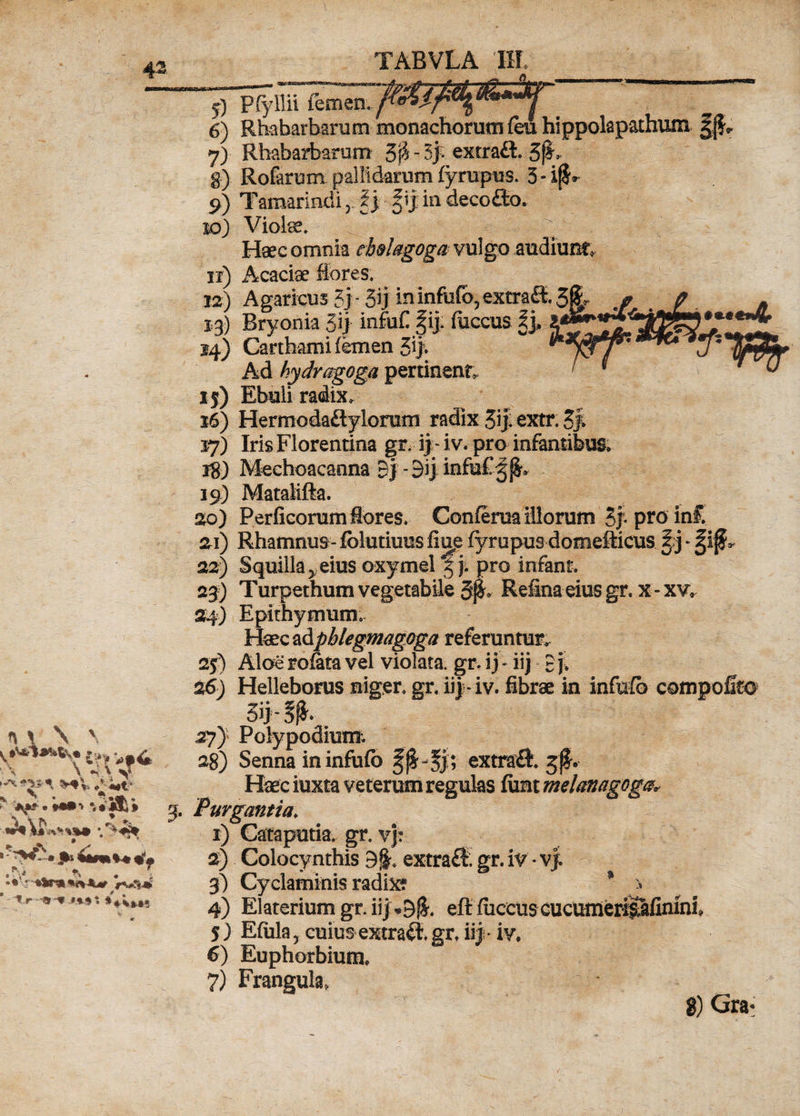 42
TABVLA III.
5) Pſyllii ſemen.
6) Rhabarbarum monachorum ſeu hippolapathum ℥ß.
7) Rhabarbarum ʒß-ʒj. extract. ʒß.
8) Roſarum pallidarum ſyrupus. ʒ-iß.
9) Tamarindi, ℥j ℥ij in decocto.
10) Violæ.
Hæc omnia cholagoga vulgo audiunt.
11) Acaciæ flores.
12) Agaricus ʒj-ʒij in infuſo, extract. ʒß.
13) Bryonia ʒij infuſ. ℥ij. ſuccus ℥j.
14) Carthami ſemen ʒij.
Ad hydragoga pertinent.
15) Ebuli radix.
16) Hermodactylorum radix ʒij. extr. ʒj.
17) Iris Florentina gr. ij-iv. pro infantibus.
18) Mechoacanna ℈j-℈ij infuſ ℥ß.
19) Mataliſta.
20) Perſicorum flores. Conſerua illorum ʒj. pro inf.
21) Rhamnus-ſolutiuus ſiue ſyrupus domeſticus ℥j-℥iß.
22) Squilla, eius oxymel ℥j. pro infant.
23) Turpethum vegetabile ʒß. Reſina eius gr. x-xv.
24) Epithymum.
Hæc ad phlegmagoga referuntur.
25) Aloë roſata vel violata. gr. ij-iij ℈j.
26) Helleborus niger. gr. iij-iv. fibræ in infuſo compoſito
ʒij-℥ß.
27) Polypodium.
28) Senna in infuſo ℥ß-℥j; extract. ʒß.
Hæc iuxta veterum regulas ſunt melanagoga.
3. Purgantia.
1) Cataputia. gr. vj.
2) Colocynthis ℈ß. extract. gr. iv-vj.
3) Cyclaminis radix.
4) Elaterium gr. iij-℈ß. eſt ſuccus cucumeris aſinini.
5) Eſula, cuius extract. gr. iij-iv.
6) Euphorbium.
7) Frangula.
8) Gra-